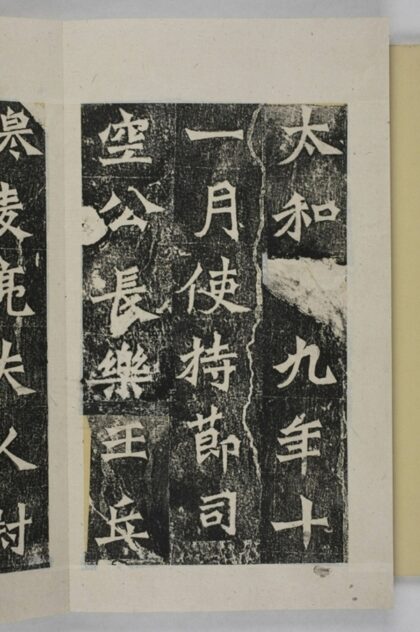 太和九年十
一月使持節司
空公長樂王丘
陵亮夫人尉